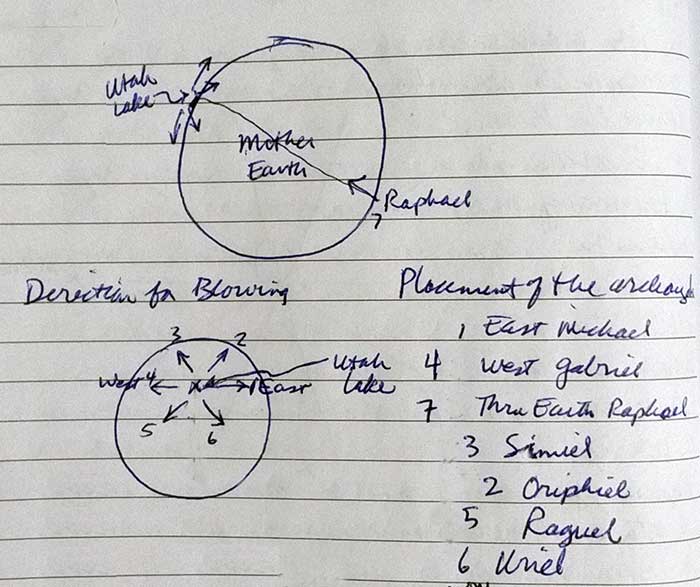 Utah
Lake
Mother
Earth
Raphael
7
Direction for Blowing
Placement of the archang
3
2
West 4
1 East
Utah
Lake
5
6
1 East Michael
4 West Gabriel
7 Thru Earth Raphael
3 Simiel
2 Oriphiel
5 Raguel
6 Uriel